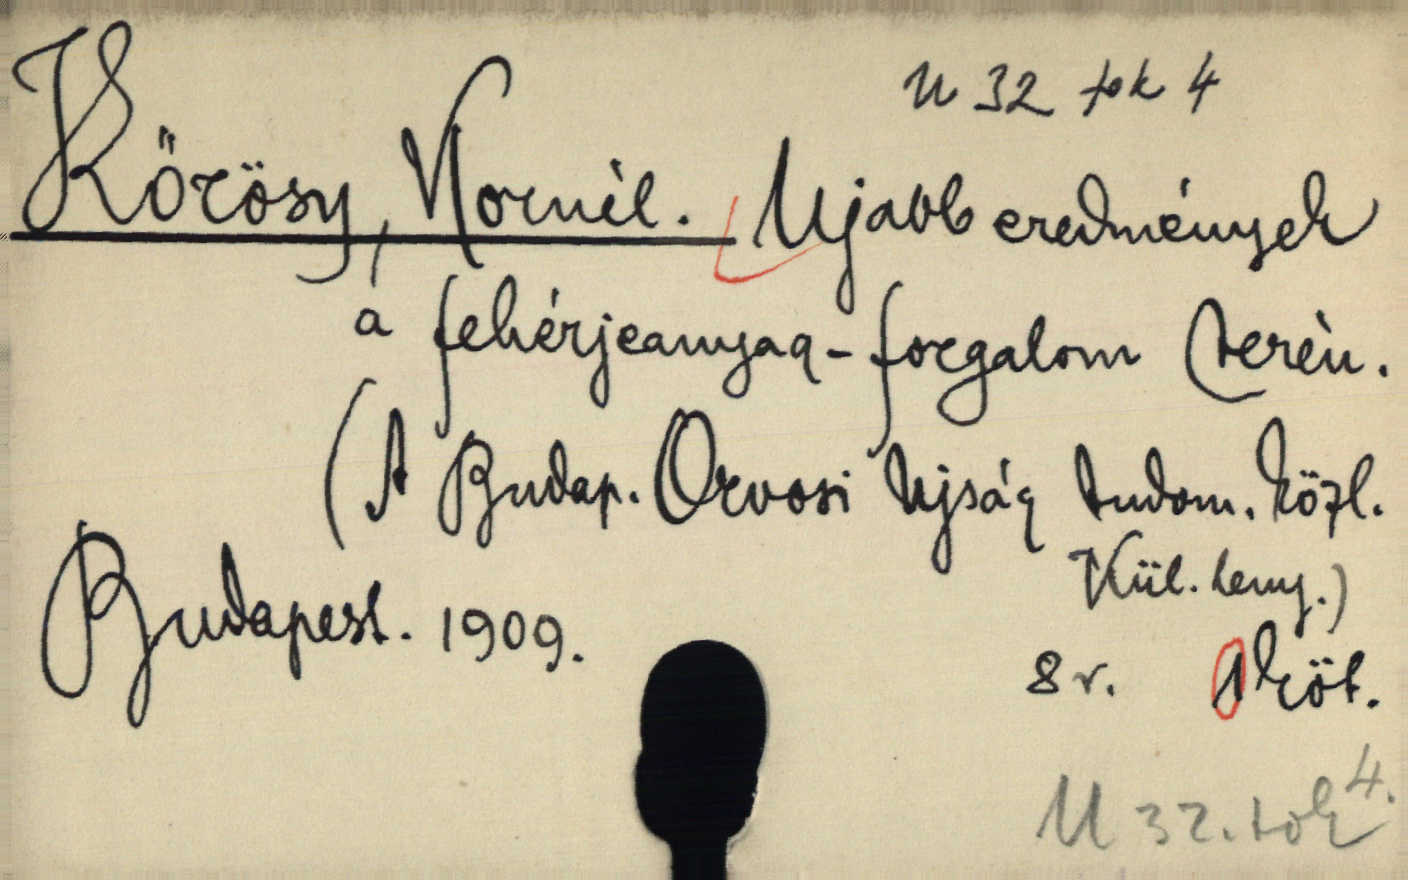 U 32 tok 4
Kőrösy, Kornél. Ujabb eredmények
a fehérjeanyag-forgalom terén.
(A Budap. Orvosi Ujság tudom. közl.
Kül. leny.)
Budapest. 1909.
8 r. 1 köt.
U 32. tok 4.